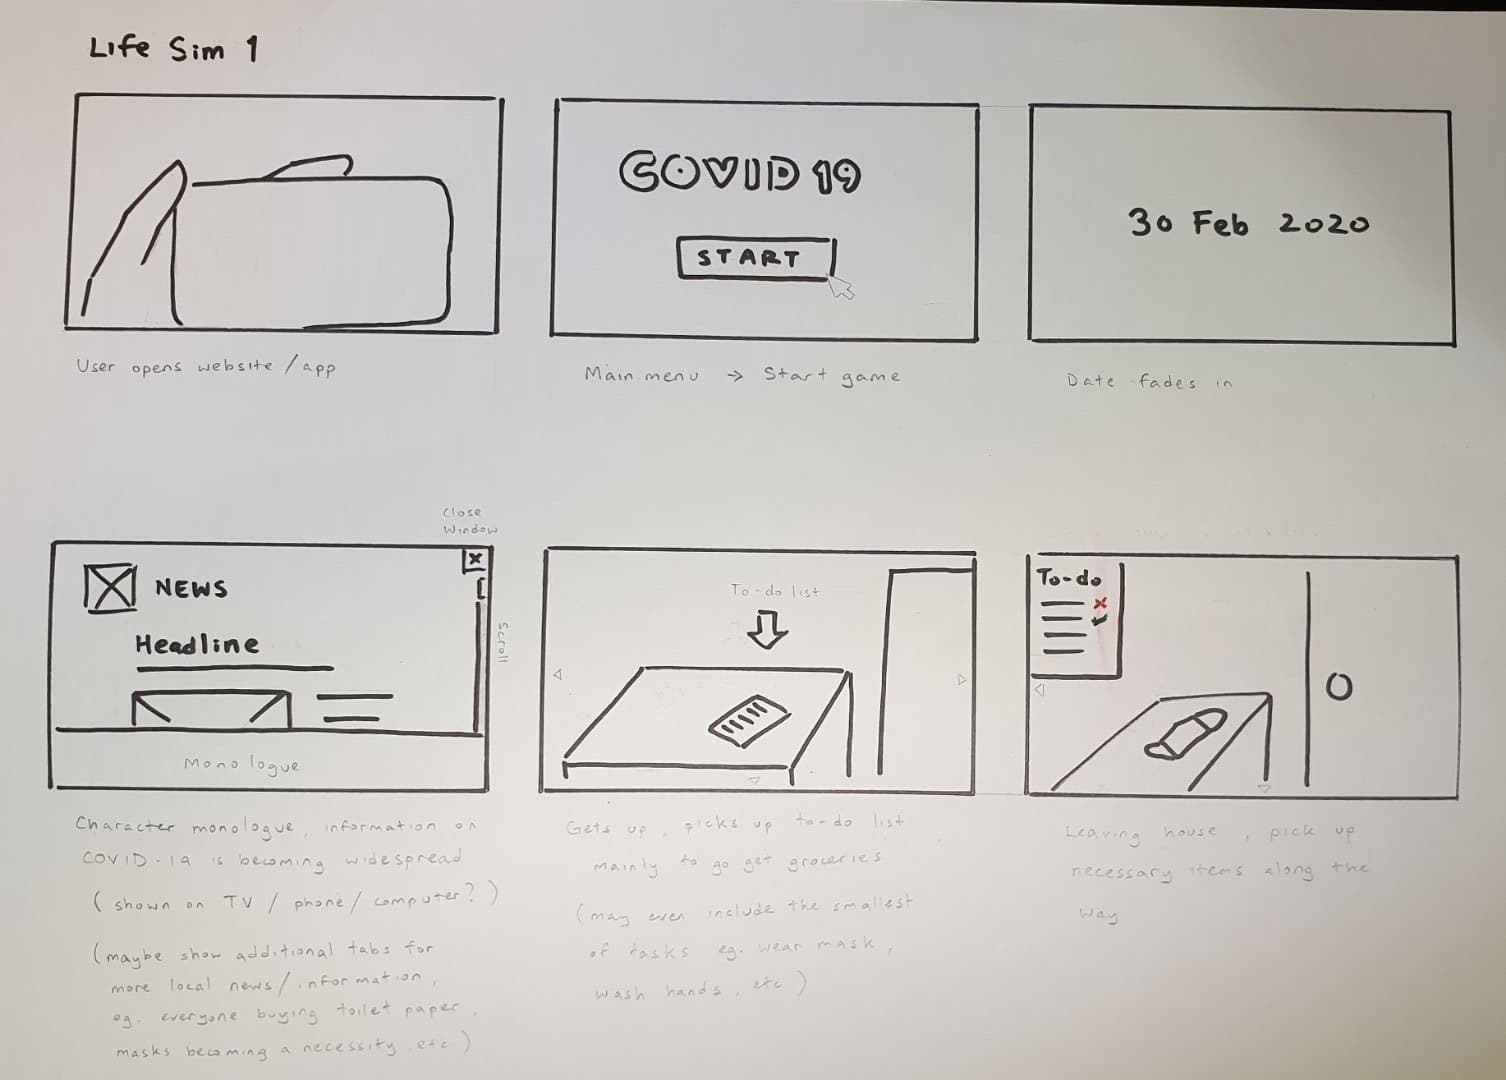 Life Sim 1
COVID 19
START
30 Feb 2020
User opens website / app
Main menu → Start game
Date fades in
Close
Window
X
NEWS
Headline
Scroll
Monologue
To-do list
To-do
Character monologue, information on
COVID-19 is becoming widespread
(shown on TV / phone / computer?)
(maybe show additional tabs for
more local news / information,
eg. everyone buying toilet paper,
masks becoming a necessity, etc)
Gets up, picks up to-do list
mainly to go get groceries
(may even include the smallest
of tasks eg. wear mask,
wash hands, etc)
Leaving house, pick up
necessary items along the
way